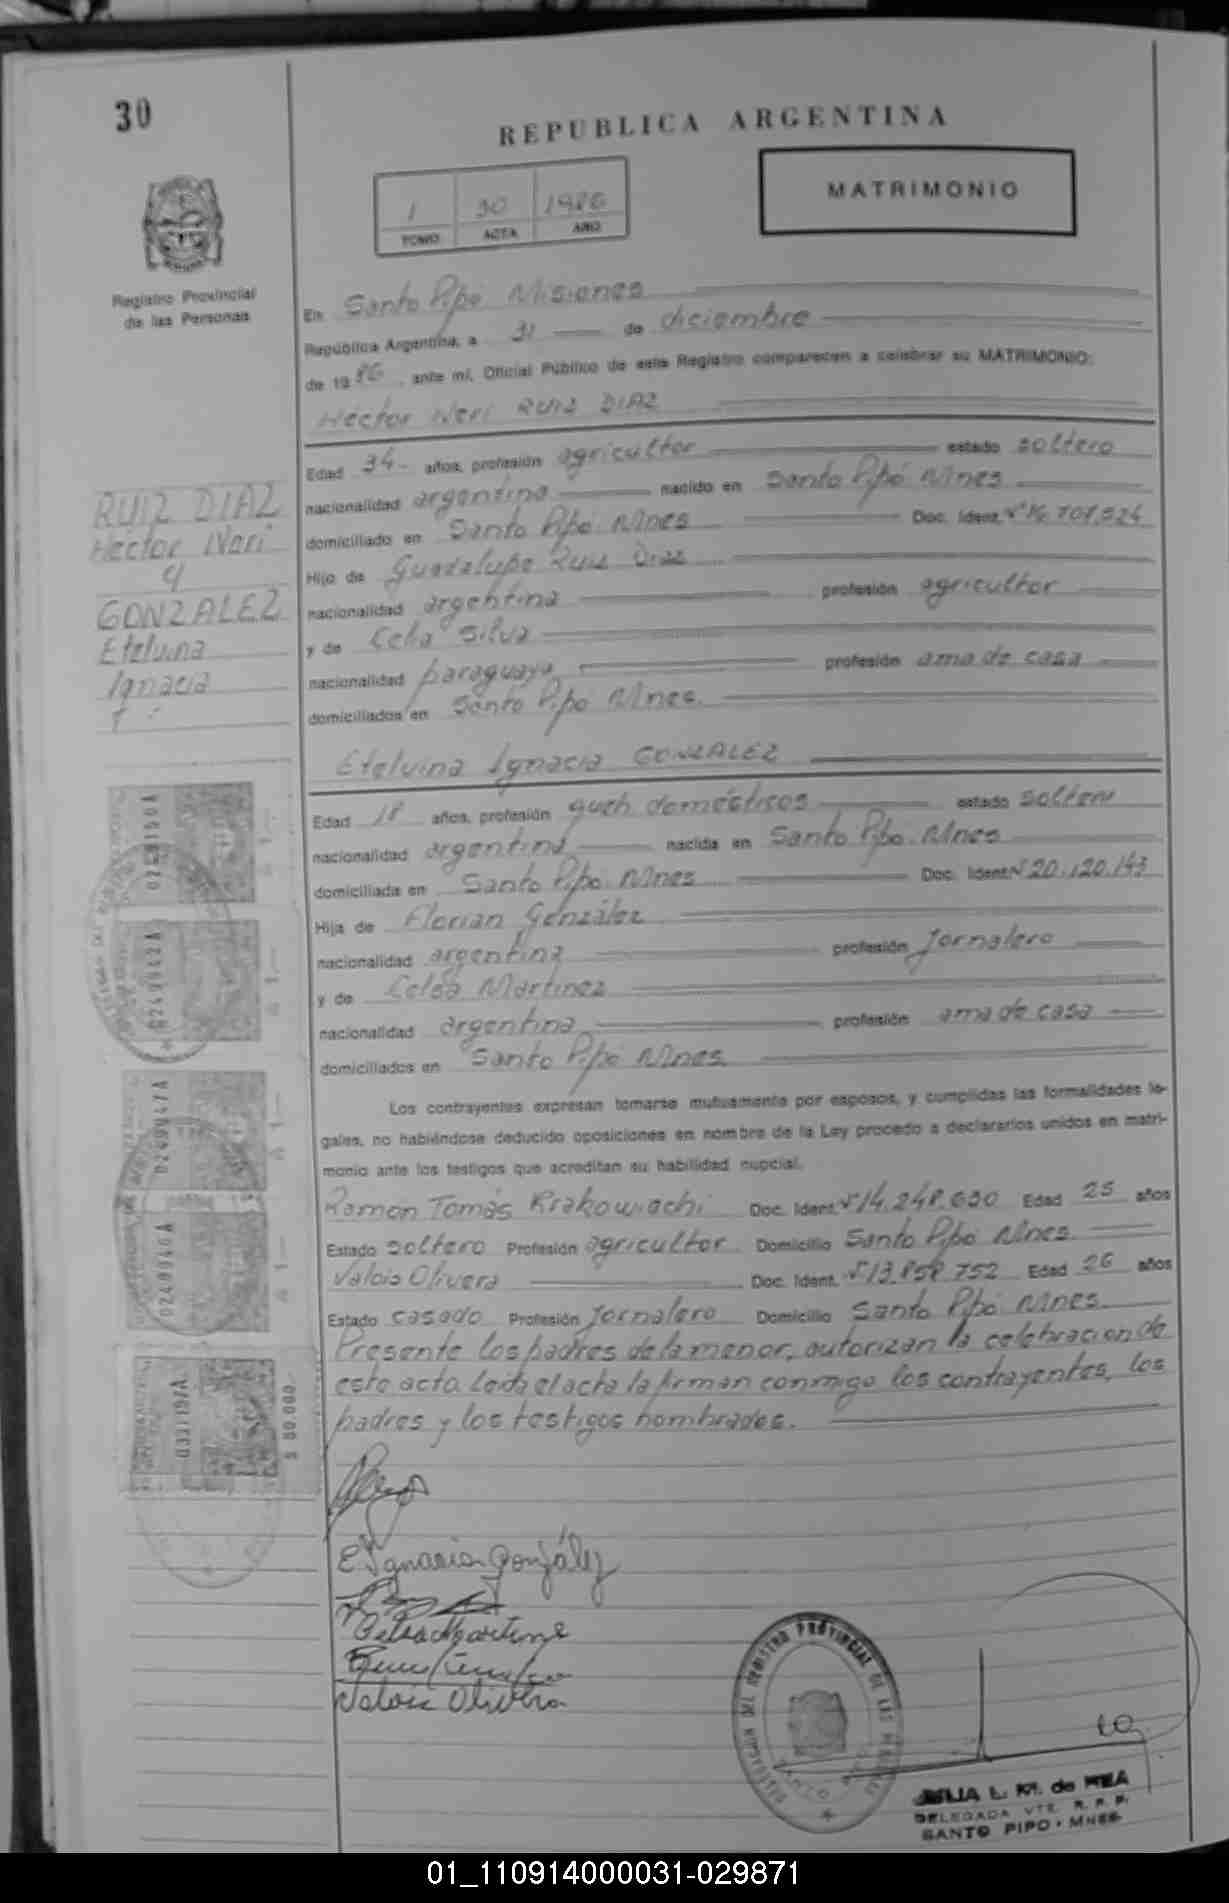 30
REPUBLICA ARGENTINA
MATRIMONIO
1 30 1986
TOMO ACTA AÑO
Registro Provincial
de las Personas
En Santo Pipó Misiones
República Argentina, a 31 de diciembre
de 1986, ante mí, Oficial Público de este Registro comparecen a celebrar su MATRIMONIO:
Héctor Neri RUIZ DIAZ
Edad 34 años, profesión agricultor estado soltero
nacionalidad argentina nacido en Santo Pipó Mnes
domiciliado en Santo Pipó Mnes Doc. Ident. Nº
Hijo de Guadalupe Ruiz Diaz
nacionalidad argentina profesión agricultor
y de Celia Silva
nacionalidad paraguaya profesión ama de casa
domiciliados en Santo Pipó Mnes.
RUIZ DIAZ
Héctor Neri
y
GONZALEZ
Etelvina
Ignacia
Etelvina Ignacia GONZALEZ
Edad 18 años, profesión queh. domésticos estado soltera
nacionalidad argentina nacida en Santo Pipó Mnes
domiciliada en Santo Pipó Mnes Doc. Ident. Nº 20.120.143
Hija de Florian González
nacionalidad argentina profesión Jornalero
y de Celsa Martinez
nacionalidad argentina profesión ama de casa
domiciliados en Santo Pipó Mnes.
Los contrayentes expresan tomarse mutuamente por esposos, y cumplidas las formalidades le-
gales, no habiéndose deducido oposiciones en nombre de la Ley procedo a declararlos unidos en matri-
monio ante los testigos que acreditan su habilidad nupcial.
Ramon Tomás Krakowiachi Doc. Ident. Nº 14.248.630 Edad 25 años
Estado soltero Profesión agricultor Domicilio Santo Pipó Mnes.
Valois Olivera Doc. Ident. Nº 13.858.752 Edad 26 años
Estado casado Profesión Jornalero Domicilio Santo Pipó Mnes.
Presente los padres de la menor, autorizan la celebracion de
este acta. Leida el acta la firman conmigo los contrayentes, los
padres y los testigos nombrados.
0249942A
0249947A
0249946A
E. Ignacia González
Valois Olivera
DELEGACION DEL REGISTRO PROVINCIAL DE LAS PERSONAS
SANTO PIPO
L. Mª. de MEA
DELEGADA VTE. R. P. P.
SANTO PIPO - MNES.
01_110914000031-029871